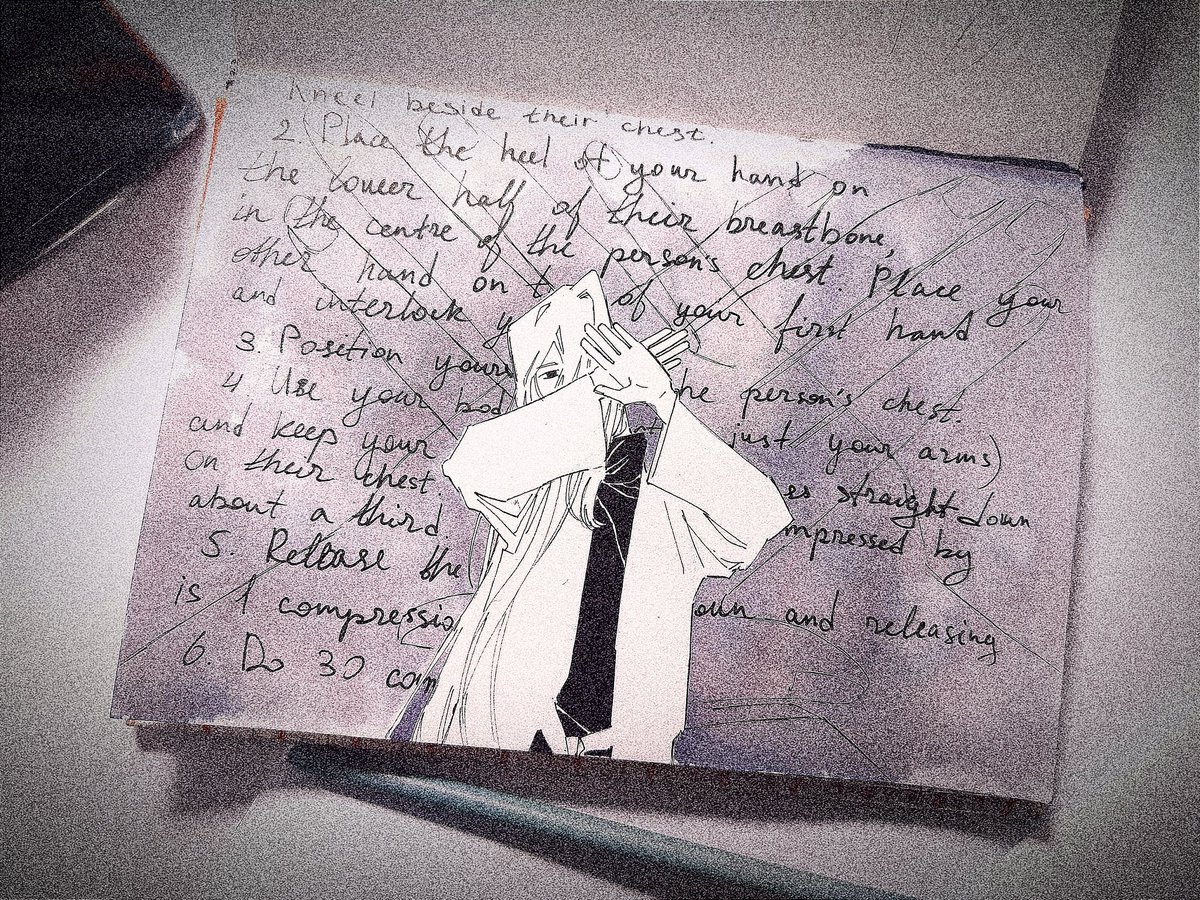 Kneel beside their chest.
2. Place the heel of your hand on
the lower half of their breastbone,
in the centre of the person's chest. Place your
other hand on of your first hand
and interlock
3. Position the person's chest.
4. Use your just your arms)
and keep your straight down
on their chest. compressed by
about a third.
5. Release the and releasing
is 1 compression
6. Do 30